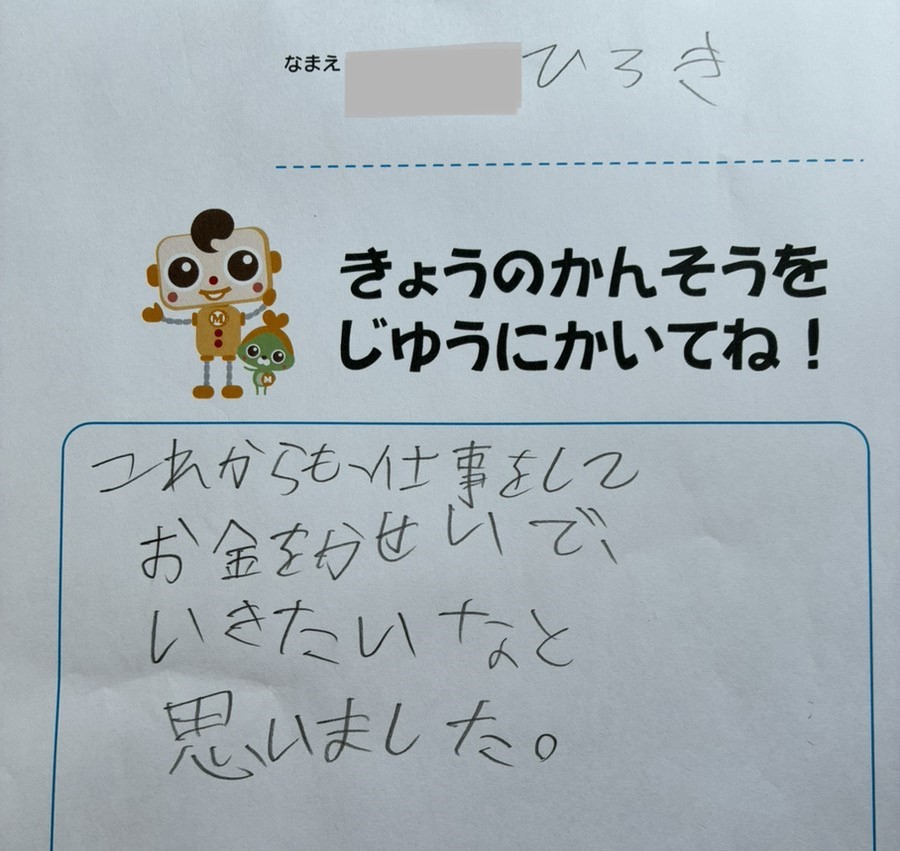 なまえ ひろき
きょうのかんそうを
じゆうにかいてね！
M
M
これからも、仕事をして
お金をかせいで、
いきたいなと
思いました。